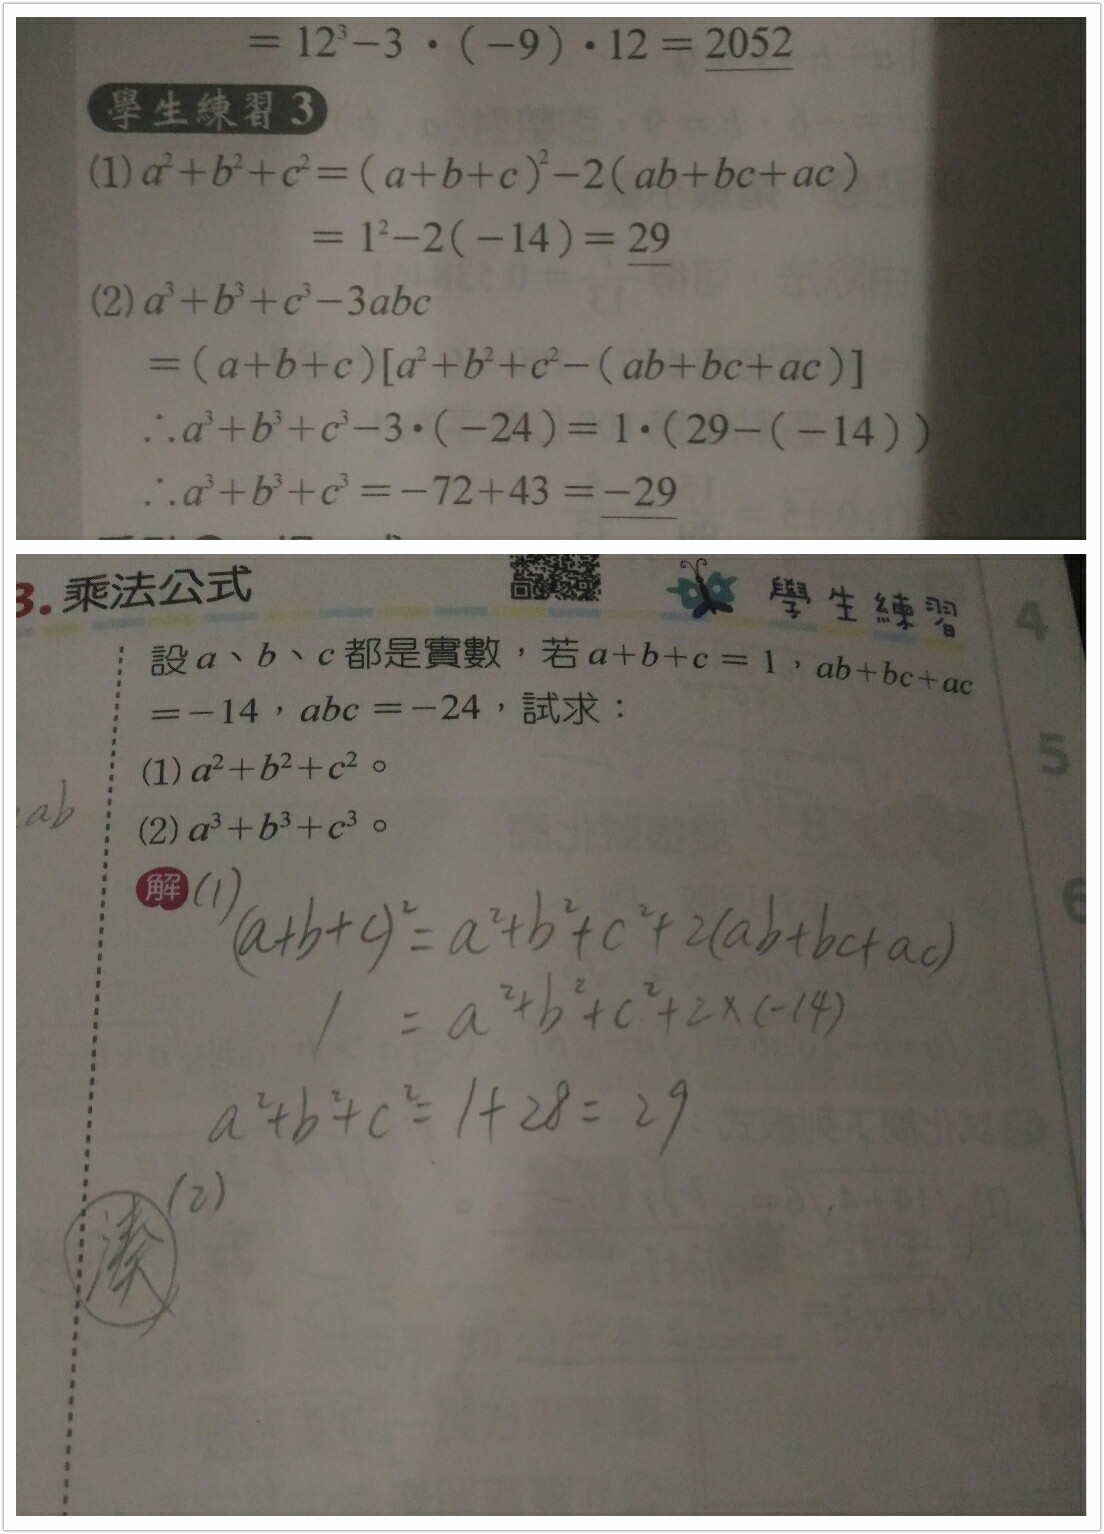 = 12³−3・(−9)・12 = 2052
學生練習 3
(1) a²+b²+c²=(a+b+c)²−2(ab+bc+ac)
= 1²−2(−14)= 29
(2) a³+b³+c³−3abc
=(a+b+c)[a²+b²+c²−(ab+bc+ac)]
∴a³+b³+c³−3・(−24)= 1・(29−(−14))
∴a³+b³+c³ =−72+43 =−29
3. 乘法公式
學生練習
4
設 a、b、c 都是實數，若 a+b+c = 1，ab+bc+ac
=−14，abc =−24，試求：
5
(1) a²+b²+c²。
ab
(2) a³+b³+c³。
解 (1)
6
(a+b+c)² = a²+b²+c²+2(ab+bc+ac)
1 = a²+b²+c²+2×(-14)
a²+b²+c² = 1+28 = 29
(2)
湊